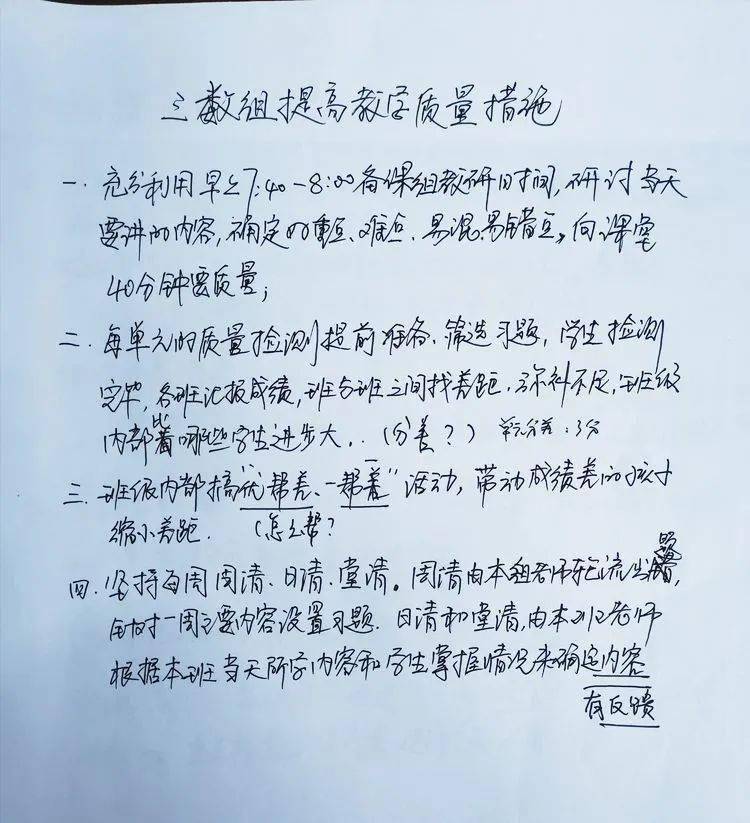 三数组提高教学质量措施
一. 充分利用早上7:40-8:00备课组教研时间,研讨当天
要讲的内容,确定的重点、难点、易混易错点,向课堂
40分钟要质量;
二. 每单元的质量检测提前准备、筛选习题,学生检测
完毕,各班汇报成绩,班与班之间找差距,弥补不足,班级
内部比着哪些学生进步大.. (分差?) 单元分差:3分
三. 班级内部搞"优帮差、一帮一"活动,带动成绩差的孩子
缩小差距. (怎么帮?
四. 坚持每周周清、日清、堂清。周清由本组老师轮流出题,
针对一周主要内容设置习题. 日清和堂清,由本班老师
根据本班当天所学内容和学生掌握情况来确定内容
有反馈